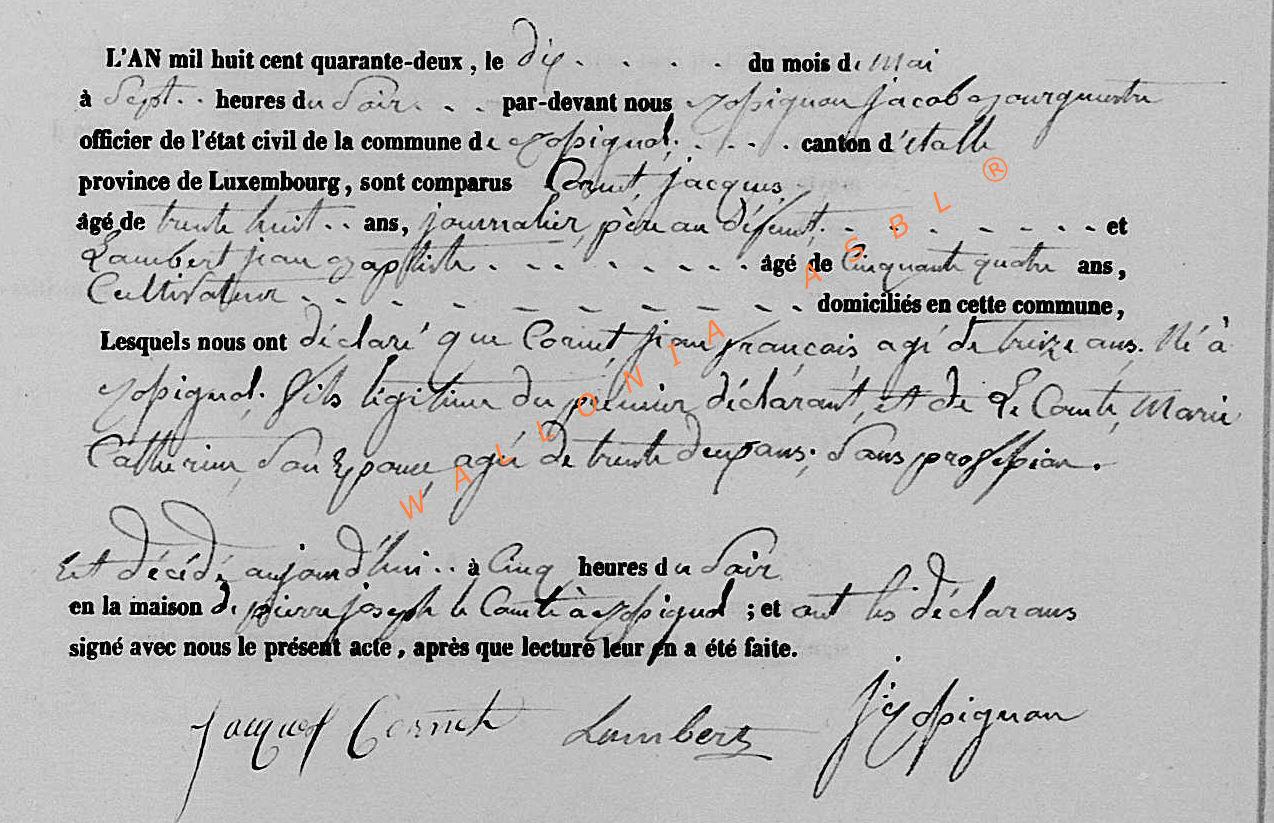 L'AN mil huit cent quarante-deux, le dix . . . . du mois de Mai
à Sept . . heures du Soir . . . par-devant nous jacob Bourguemestre
officier de l'état civil de la commune de . . . . canton d'étalle
province de Luxembourg, sont comparus Cornet, jacques,
âgé de trente huit . . ans, journalier, père au défunt, . . - - - - - - et
Lambert jean Baptiste . . - - - - - . âgé de Cinquante quatre ans,
Cultivateur . - - - - - - - - - . . domiciliés en cette commune,
Lesquels nous ont déclaré que Cornet, jean françois, agé de treize ans. Né à
fils légitime du premier déclarant, et de Le Comte, Marie
Catherine, Son Epouse, agée de trente deux ans, Sans profession.
Est décédé aujourd'hui . . à Cinq heures du Soir
en la maison de pierre joseph le Comte à ; et ont les déclarans
signé avec nous le présent acte, après que lecture leur en a été faite.
Jacques Cornet Lambert
WALLONIA ASBL ®